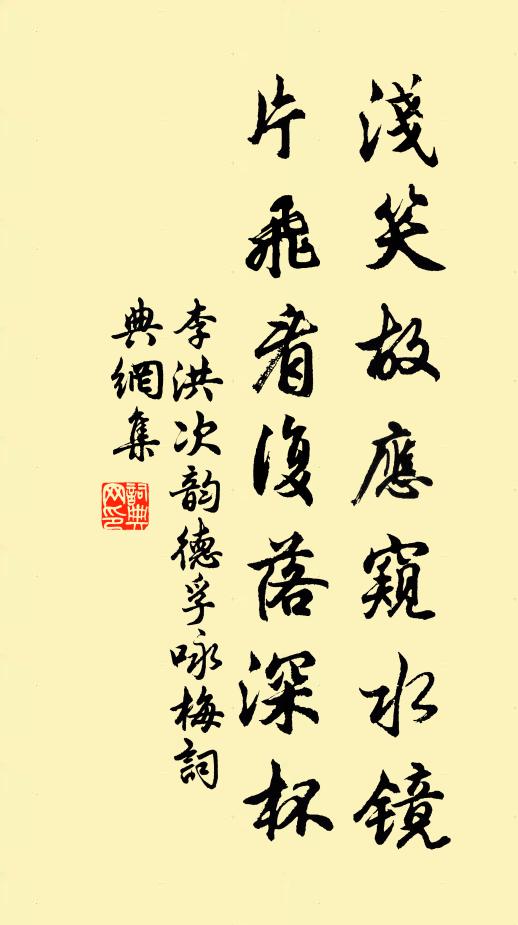 淺笑故應窺水鏡
片飛看復落深杯
李洪次韵德孚咏梅詞
典網集
詞典网印